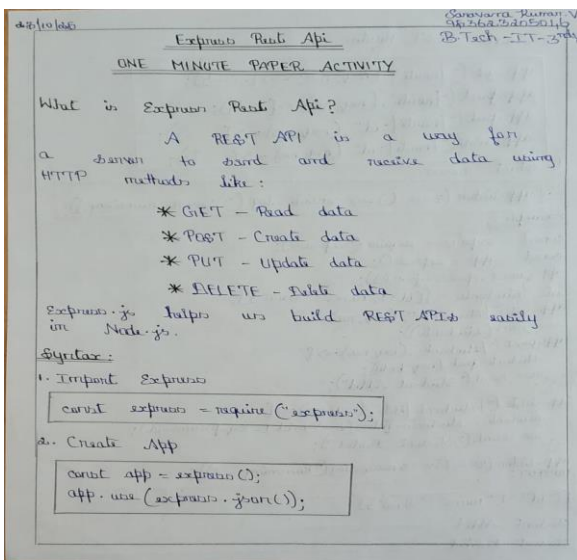 Saravana Kumar. V
28/10/25
963623205046
Express Rest Api
B.Tech - IT - 3rd
ONE MINUTE PAPER ACTIVITY
What is Express Rest Api?
A REST API is a way for
a server to send and receive data using
HTTP methods like:
* GET - Read data
* POST - Create data
* PUT - Update data
* DELETE - Delete data
Express.js helps us build REST APIs easily
in Node.js.
Syntax:
1. Import Express
const express = require("express");
2. Create App
const app = express();
app.use(express.json());